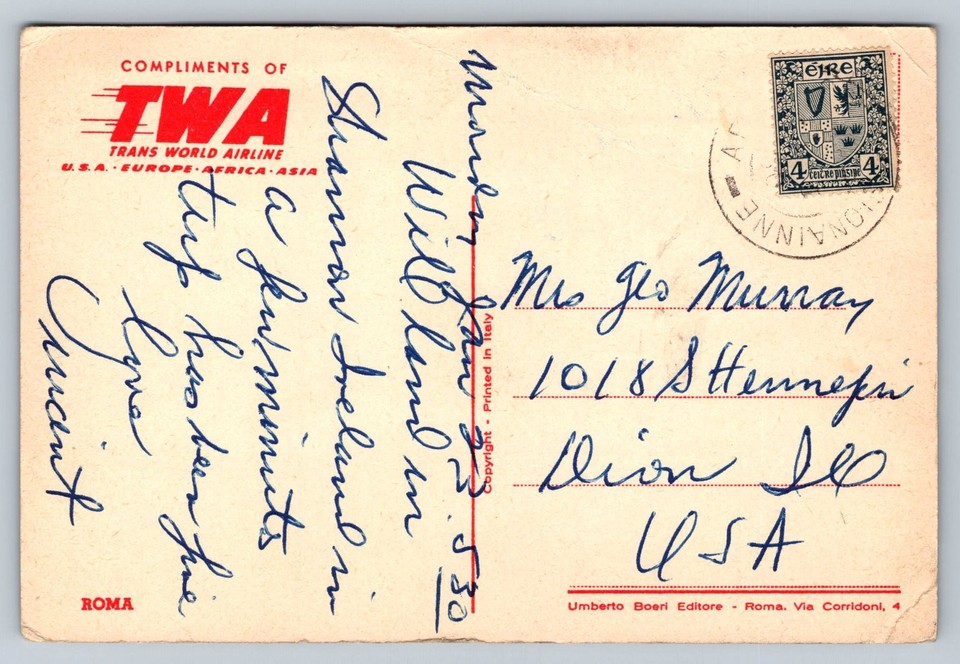 COMPLIMENTS OF
TWA
TRANS WORLD AIRLINE
U.S.A. · EUROPE · AFRICA · ASIA
Monday Jan 25 - 530
Will land in
Shannon Ireland in
a few minutes
trip has been fine
love
Vincent
ROMA
Copyright - Printed in Italy
éire
4 4
IONAINNE
Mrs Geo Murray
1018 S Hennepin
Dixon Ill
USA
Umberto Boeri Editore - Roma. Via Corridoni, 4